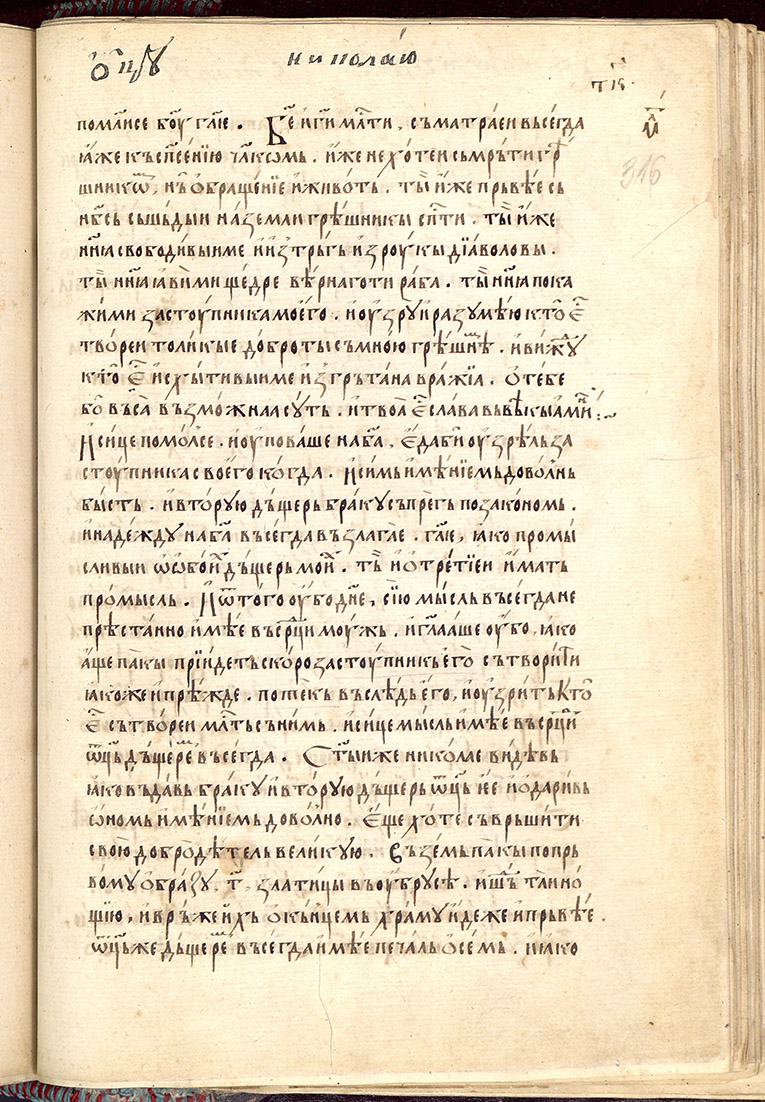 ѻ҃цꙋ николаю
т҃іѕ
л҃
316
помл҃исе бо҃у гл҃ѥ . Бе҃ и ги҃ мл҃ти , съматраѥи въсегда
ꙗже къ сп҃сенїю чл҃комь . иже не хотеи съмрьти грѣ
шникѡⷨ, нь ѻбращенїе и животь . ты иже прьвѣе съ
нб҃сь съшьдыи на земли грѣшникы сп҃ти . ты иже
нн҃ꙗ свободивыи ме и изтрьгь из роукы дїаволовы .
ты нн҃ꙗ ꙗви ми щедре вѣрнаго ти раба . ты нн҃ꙗ пока
жи ми застоупника моѥго . и оузроу и разумѣю кто ѥ҃
твореи толикыѥ доброты съ мною грѣшнⷨѣ . и вижⷣу
кто ѥ҃ исхытивыи ме из грътана вражїа . ѻ тебе
бо въса възможнаа суть . и твоа ѥ҃ слава въ вѣкы аминⷩ :~
И сице помолⷧсе . и оуповаше на ба҃ , ѥда бы оузрѣль за
стоупника своѥго когда . И симь имѣнїемь доволⷧнь
бысть . и вторую дъщерь браку съпрегь по закономь .
и надежду на ба҃ въсегда възлагⷶе . гл҃ѥ , ꙗко промы
сливыи ѡ ѻбоюⷯ дъщерь моюⷯ . тъⷤ и ѻ третїеи имать
промысль . И ѿ того оубо дн҃е , сїю мысль въсегда не
прѣстанно имѣе въ срⷣци моужь . и гл҃ааше оубо , ꙗко
аще пакы прїидеть скоро застоупникь ѥго сътворити
ꙗкоже и прѣжде . потекь въ слѣдь ѥго , и оузрить кто
ѥ҃ сътвореи мл҃ть с нимь . и сице мысль имѣе въ срⷣци
ѿц҃ь дъщереⷨ въсегда . Ст҃ыи же николае видѣвь
ꙗко въдавь браку и вторую дъщерь ѿц҃ь иⷯе и ѻдаривь
ѡномь имѣнїемь доволⷧно . Еще хоте съврьшити
свою добродѣтель великую . Въземь пакы по прь
вому ѻбразу . т҃ , златицы въ оубрусѣ . и шⷣь таи но
щїю , и врьже ихь ѻкьнцемь храму идеже и прьвѣе .
ѿц҃ь же дъщереⷨ въсегда имѣе печаль ѻ семь . и ꙗко